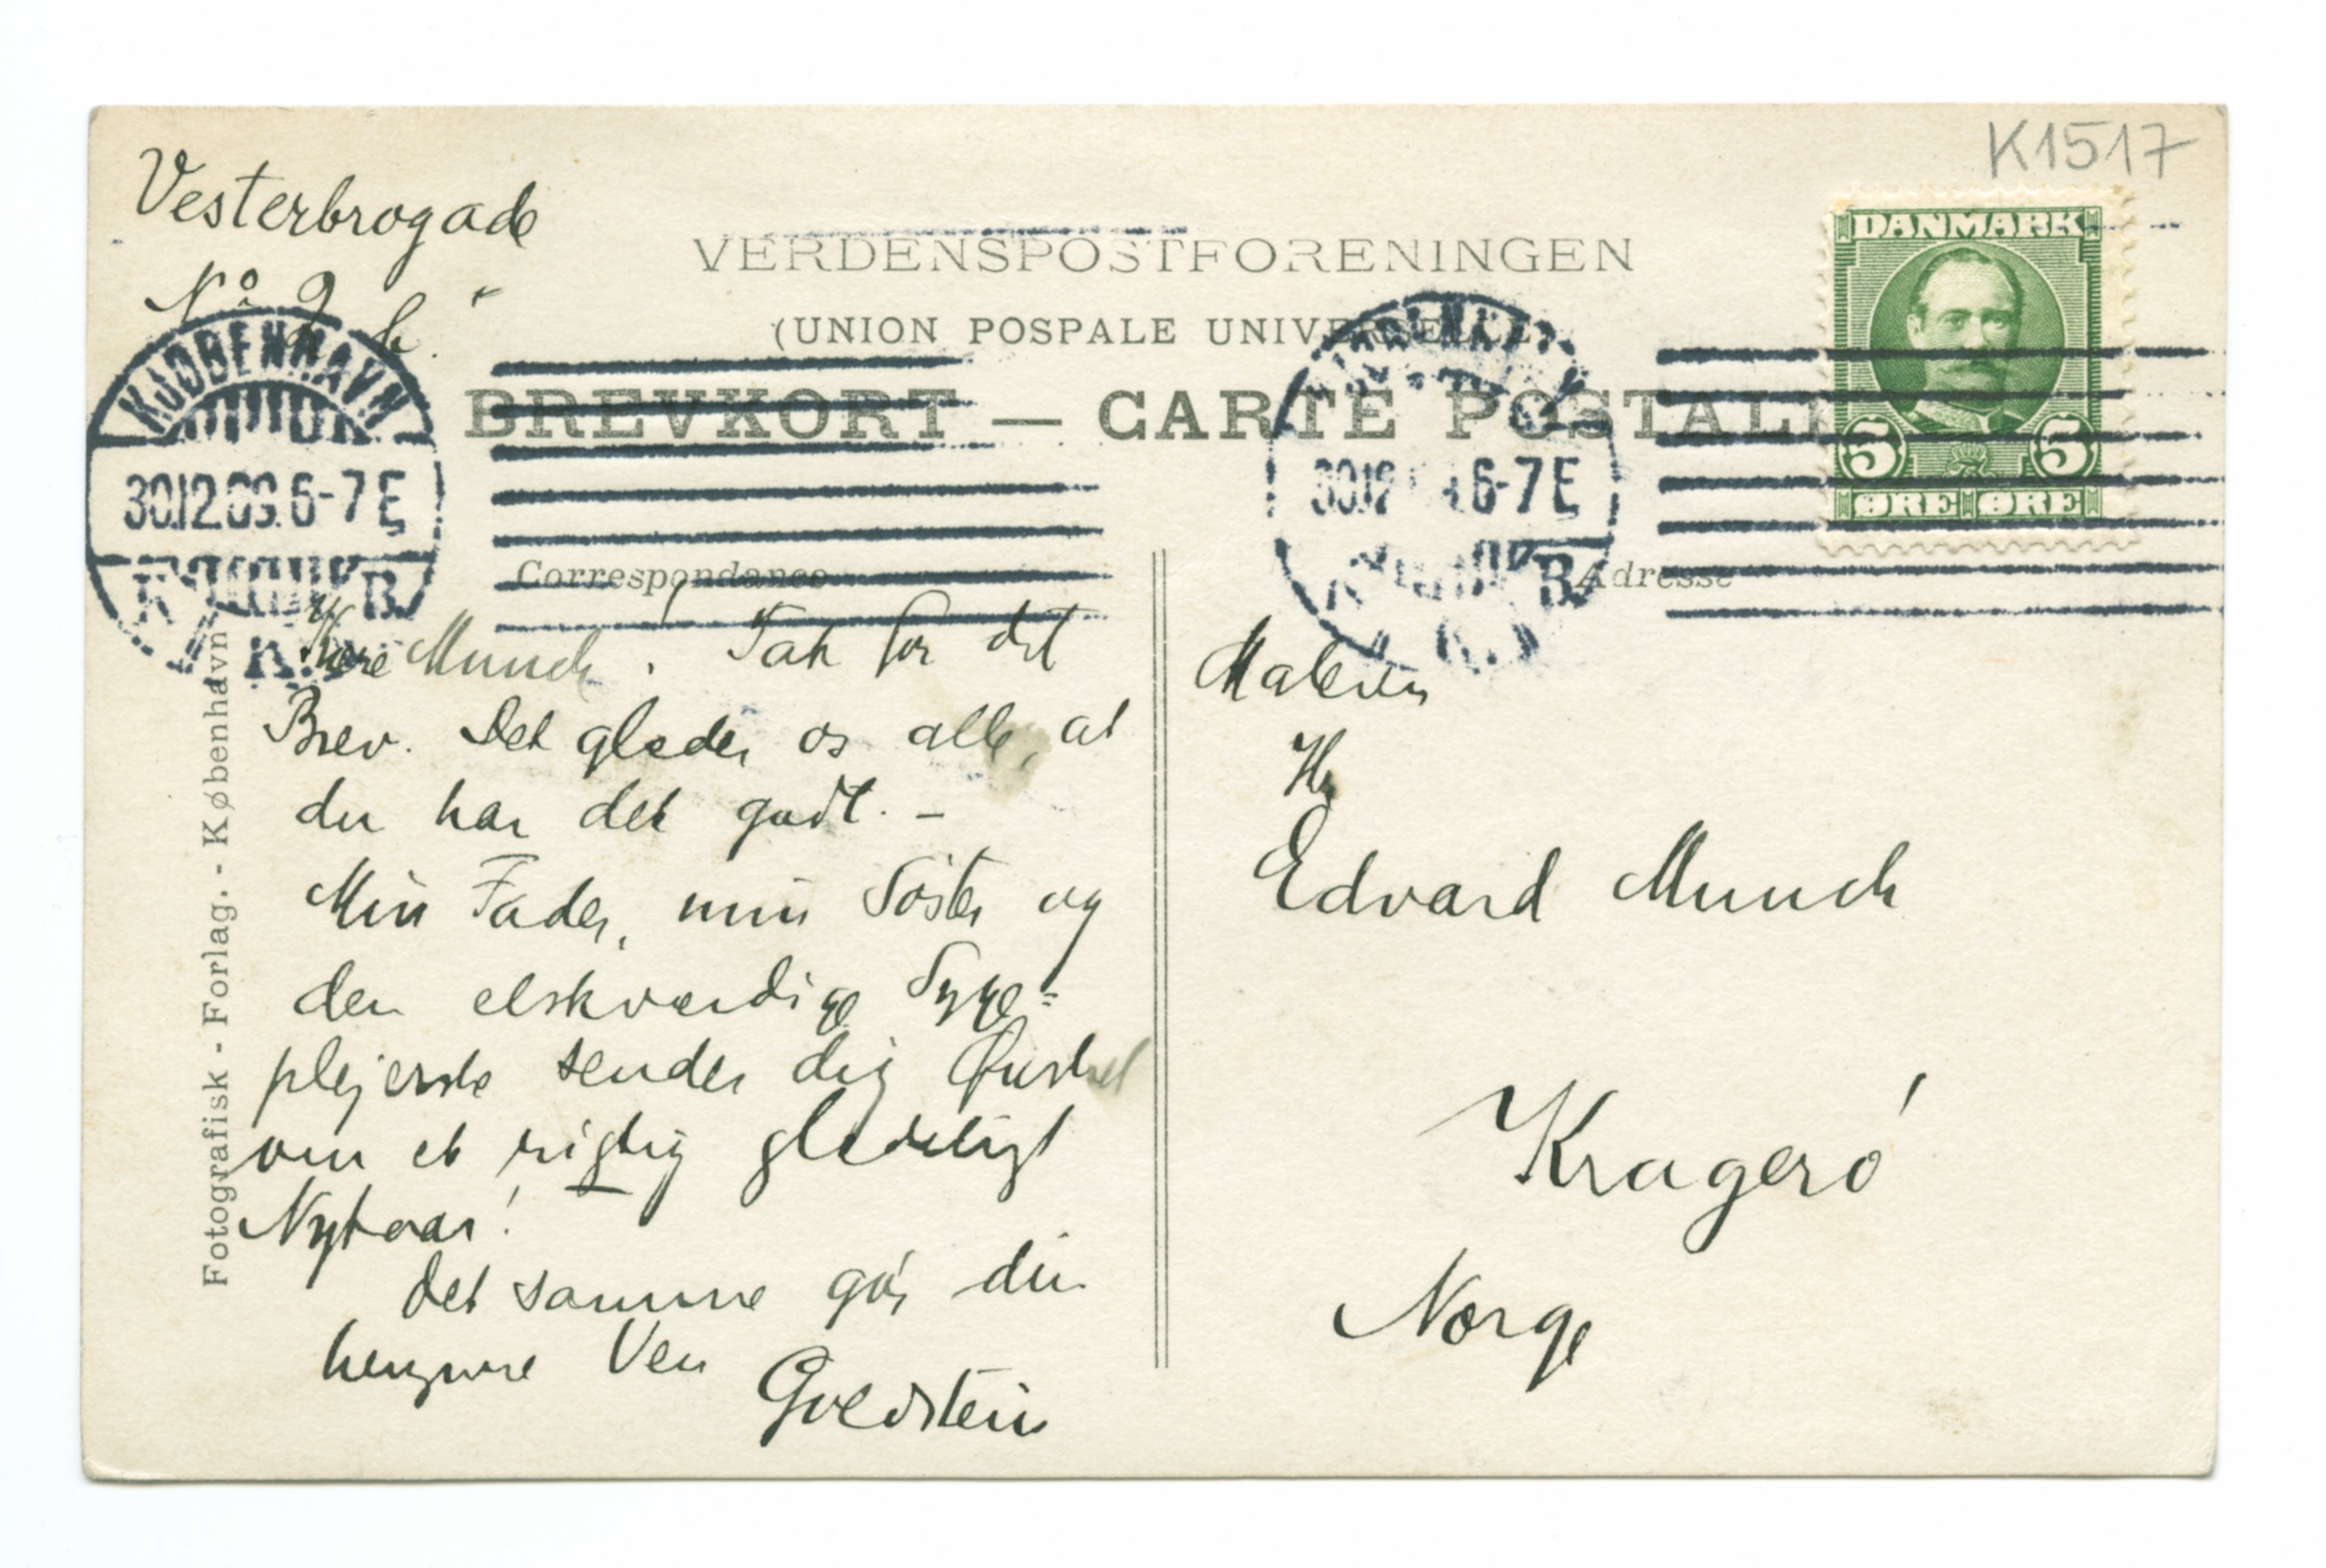 K1517
Vesterbrogade
No 9
VERDENSPOSTFORENINGEN
(UNION POSPALE UNIVERSELLE)
BREVKORT — CARTE POSTALE
DANMARK
5 5
ØRE ØRE
KJØBENHAVN
30.12.09. 6-7 E
B.
K.
30.12 6-7 E
B.
K.
Correspondance
Adresse
Kære Munch! Tak for dit
Brev. Det glæder os alle, at
du har det godt. –
Min Fader, min Søster og
den elskværdige Syge=
plejerske sender dig Ønsket
om et rigtig glædeligt
Nytaar!
Det samme gør din
hengivne Ven
Goldstein
Maleren
Hr
Edvard Munch
Kragerö
Norge
Fotografisk - Forlag. - København